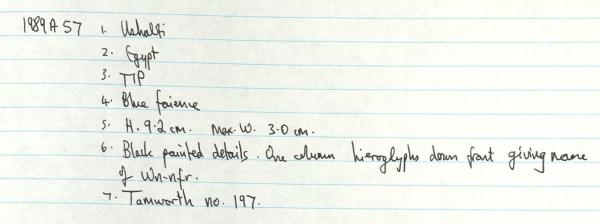 1989A57 1. Ushabti
2. Egypt
3. TIP
4. Blue faience
5. H. 9.2 cm. Max. W. 3.0 cm.
6. Black painted details. One column hieroglyphs down front giving name
of Wn-nfr.
7. Tamworth no. 197.